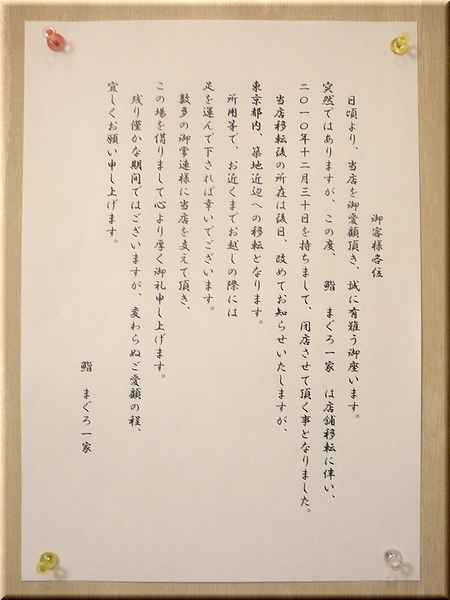 御客様各位
日頃より、当店を御愛顧頂き、誠に有難う御座います。
突然ではありますが、この度、 鮨 まぐろ一家 は店舗移転に伴い、
二〇一〇年十二月三十日を持ちまして、閉店させて頂く事となりました。
当店移転後の所在は後日、改めてお知らせいたしますが、
東京都内、築地近辺への移転となります。
所用等で、お近くまでお越しの際には
足を運んで下されば幸いでございます。
数多の御常連様に当店を支えて頂き、
この場を借りまして心より厚く御礼申し上げます。
残り僅かな期間ではございますが、変わらぬご愛顧の程、
宜しくお願い申し上げます。
鮨 まぐろ一家